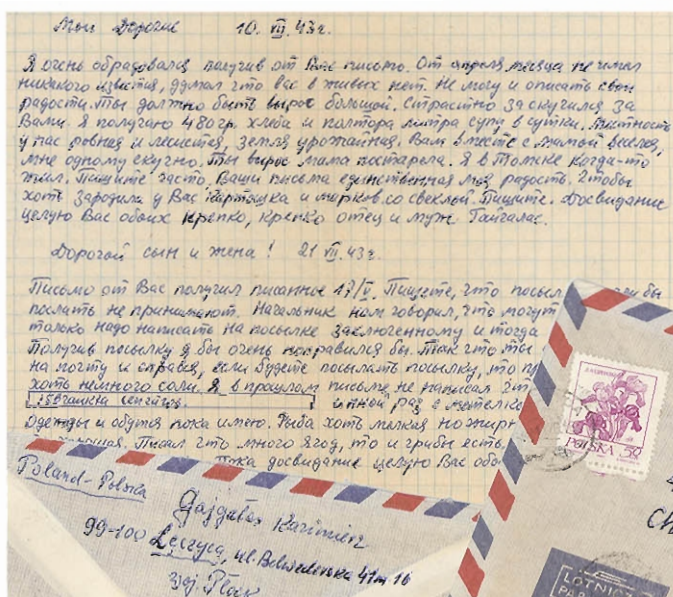 Мои Дорогие 10. VII. 43г.
Я очень обрадовался получив от Вас письмо. От апреля месяца не имел
никакого известия, думал что вас в живых нет. Не могу и описать свои
радости. Ты должно быть вырос большой. Страстно заскучился за
Вами. Я получаю 480гр. хлеба и полтора литра супу в сутки. Местность
у нас ровная и лесистая, земля урожайная. Вам вместе с мамой веселей,
мне одному скучно. Ты вырос мама постарела. Я в Томске когда-то
жил. Пишите часто. Ваши письма единственная моя радость. Чтобы
хоть зародила у Вас картошка и морковь со свеклой. Пишите. Досвидание
целую Вас обоих крепко, крепко отец и муж. Гайгалас.
Дорогой сын и жена! 21 VII. 43г.
Письмо от Вас получил писанное 17/V. Пишете, что посыл бы
послать не принимают. Начальник нам говорил, что могут
только надо написать на посылке заключенному и тогда
Получив посылку я бы очень поправился бы. Так что ты
на почту и справся, если будете посылать посылку, то
хоть немного соли. Я в прошлом письме не написал
раз с
Одежды и обутся пока имею. Рыба хоть мелкая но жирн
хорошая. Писал что много ягод, то и грибы есть.
Пока досвидание целую Вас обо
POLSKA 50
Poland-Polska
Kazimierz
99-100 Łęczyca, ul. Belwederska 41 m 16
Woj. Płock
LOTNICZ
PAR